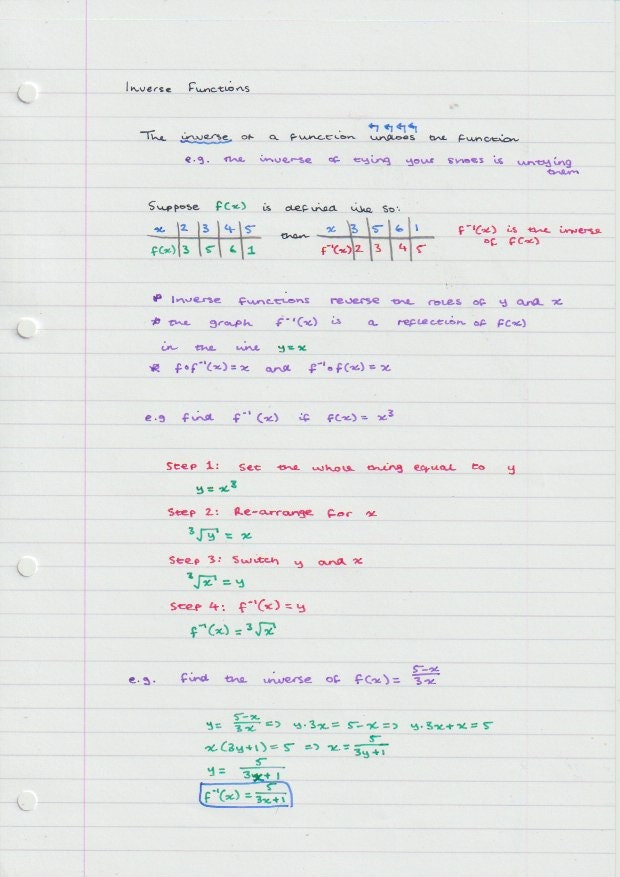 Inverse Functions
The inverse of a function undoes the function
e.g. the inverse of tying your shoes is untying
them
Suppose f(x) is defined like so:
x | 2 | 3 | 4 | 5
f(x) | 3 | 5 | 6 | 1
then
x | 3 | 5 | 6 | 1
f⁻¹(x) | 2 | 3 | 4 | 5
f⁻¹(x) is the inverse
of f(x)
* Inverse functions reverse the roles of y and x
* the graph f⁻¹(x) is a reflection of f(x)
in the line y=x
* f∘f⁻¹(x)=x and f⁻¹∘f(x)=x
e.g find f⁻¹(x) if f(x)= x³
Step 1: Set the whole thing equal to y
y=x³
Step 2: Re-arrange for x
³√y = x
Step 3: Switch y and x
³√x = y
Step 4: f⁻¹(x)=y
f⁻¹(x) = ³√x
e.g. find the inverse of f(x)= (5-x)/3x
y= (5-x)/3x => y·3x = 5-x => y·3x+x=5
x(3y+1)=5 => x= 5/(3y+1)
y= 5/(3x+1)
f⁻¹(x) = 5/(3x+1)